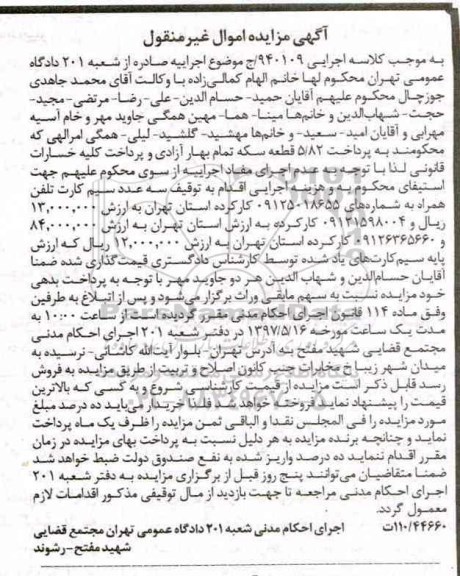 آگهی مزایده اموال غیرمنقول
به موجب کلاسه اجرایی ۹۴۰۱۰۹/ج موضوع اجراییه صادره از شعبه ۲۰۱ دادگاه
عمومی تهران محکوم لها خانم الهام کمالی‌زاده با وکالت آقای محمد جاهدی
جوزچال محکوم علیهم آقایان حمید- حسام الدین- علی- رضا- مرتضی- مجید-
حجت- شهاب‌الدین و خانم‌ها مینا- هما- مهین همگی جاوید مهر و خام آسیه
مهرابی و آقایان امید- سعید- و خانم‌ها مهشید- گلشید- لیلی- همگی امرالهی که
محکومند به پرداخت ۵/۸۲ قطعه سکه تمام بهار آزادی و پرداخت کلیه خسارات
قانونی لذا با توجه به عدم اجرای مفاد اجراییه از سوی محکوم علیهم جهت
استیفای محکوم به و هزینه اجرایی اقدام به توقیف سه عدد سیم کارت تلفن
همراه به شماره‌های ۰۹۱۲۵۰۲۸۶۵۵ کارکرده استان تهران به ارزش ۱۳,۰۰۰,۰۰۰
ریال و ۰۹۱۲۱۵۹۸۰۰۴ کارکرده به ارزش استان تهران به ارزش ۸۴,۰۰۰,۰۰۰
و ۰۹۱۲۶۳۶۵۶۶۰ کارکرده استان تهران به ارزش ۱۲,۰۰۰,۰۰۰ ریال که ارزش
پایه سیم‌کارت‌های یاد شده توسط کارشناس دادگستری قیمت‌گذاری شده ضمنا
آقایان حسام‌الدین و شهاب الدین هر دو جاوید مهر با توجه به پرداخت بدهی
خود مزایده نسبت به سهم مابقی وراث برگزار می‌شود و پس از ابلاغ به طرفین
وفق ماده ۱۱۴ قانون اجرای احکام مدنی مقرر گردیده است از ساعت ۱۰:۰۰ به
مدت یک ساعت مورخه ۱۳۹۷/۵/۱۶ در دفتر شعبه ۲۰۱ اجرای احکام مدنی
مجتمع قضایی شهید مفتح به آدرس تهران- بلوار آیت‌الله کاشانی- نرسیده به
میدان شهر زیبا خ مخابرات جنب کانون اصلاح و تربیت از طریق مزایده به فروش
رسد قابل ذکر است مزایده از قیمت کارشناسی شروع و به کسی که بالاترین
قیمت را پیشنهاد نماید فروخته خواهد شد. فلذا خریدار می‌باید ده درصد مبلغ
مورد مزایده را فی المجلس نقدا و الباقی ثمن مزایده را ظرف یک ماه پرداخت
نماید و چنانچه برنده مزایده به هر دلیل نسبت به پرداخت بهای مزایده در زمان
مقرر اقدام ننماید ده درصد واریز شده به نفع صندوق دولت ضبط خواهد شد
ضمنا متقاضیان می‌توانند پنج روز قبل از برگزاری مزایده به دفتر شعبه ۲۰۱
اجرای احکام مدنی مراجعه تا جهت بازدید از مال توقیفی مذکور اقدامات لازم
معمول گردد.
۱۱۰/۴۴۶۶۰ت اجرای احکام مدنی شعبه ۲۰۱ دادگاه عمومی تهران مجتمع قضایی
شهید مفتح- رشوند